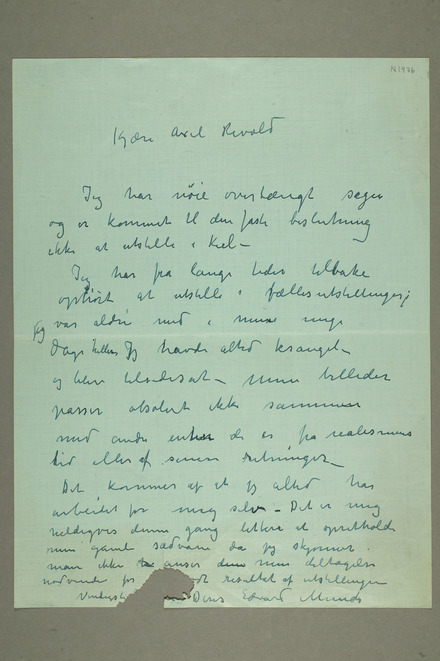 N1976
Kjære Axel Revold
Jeg har nöie overtængt sagen
og er kommet til den faste beslutning
ikke at utstille i Kiel –
Jeg har fra lange tider tilbake
ophört at utstille i fællesutstillinger;
jeg var aldri med i mine unge
dage heller. Jeg havde altid krangel –
og blev tilsidesat – mine billeder
passer absolut ikke sammen
med andre enten de er fra realismens
tid eller af senere retninger –
Det kommer af at jeg altid har
arbeidet for mig selv – Det er mig
heldigvis denne gang lettere at opretholde
min gamle sædvane da jeg skjønner
man ikke anser min deltagelse
nødvendig for resultat af utstillingen
Deres Edvard Munch